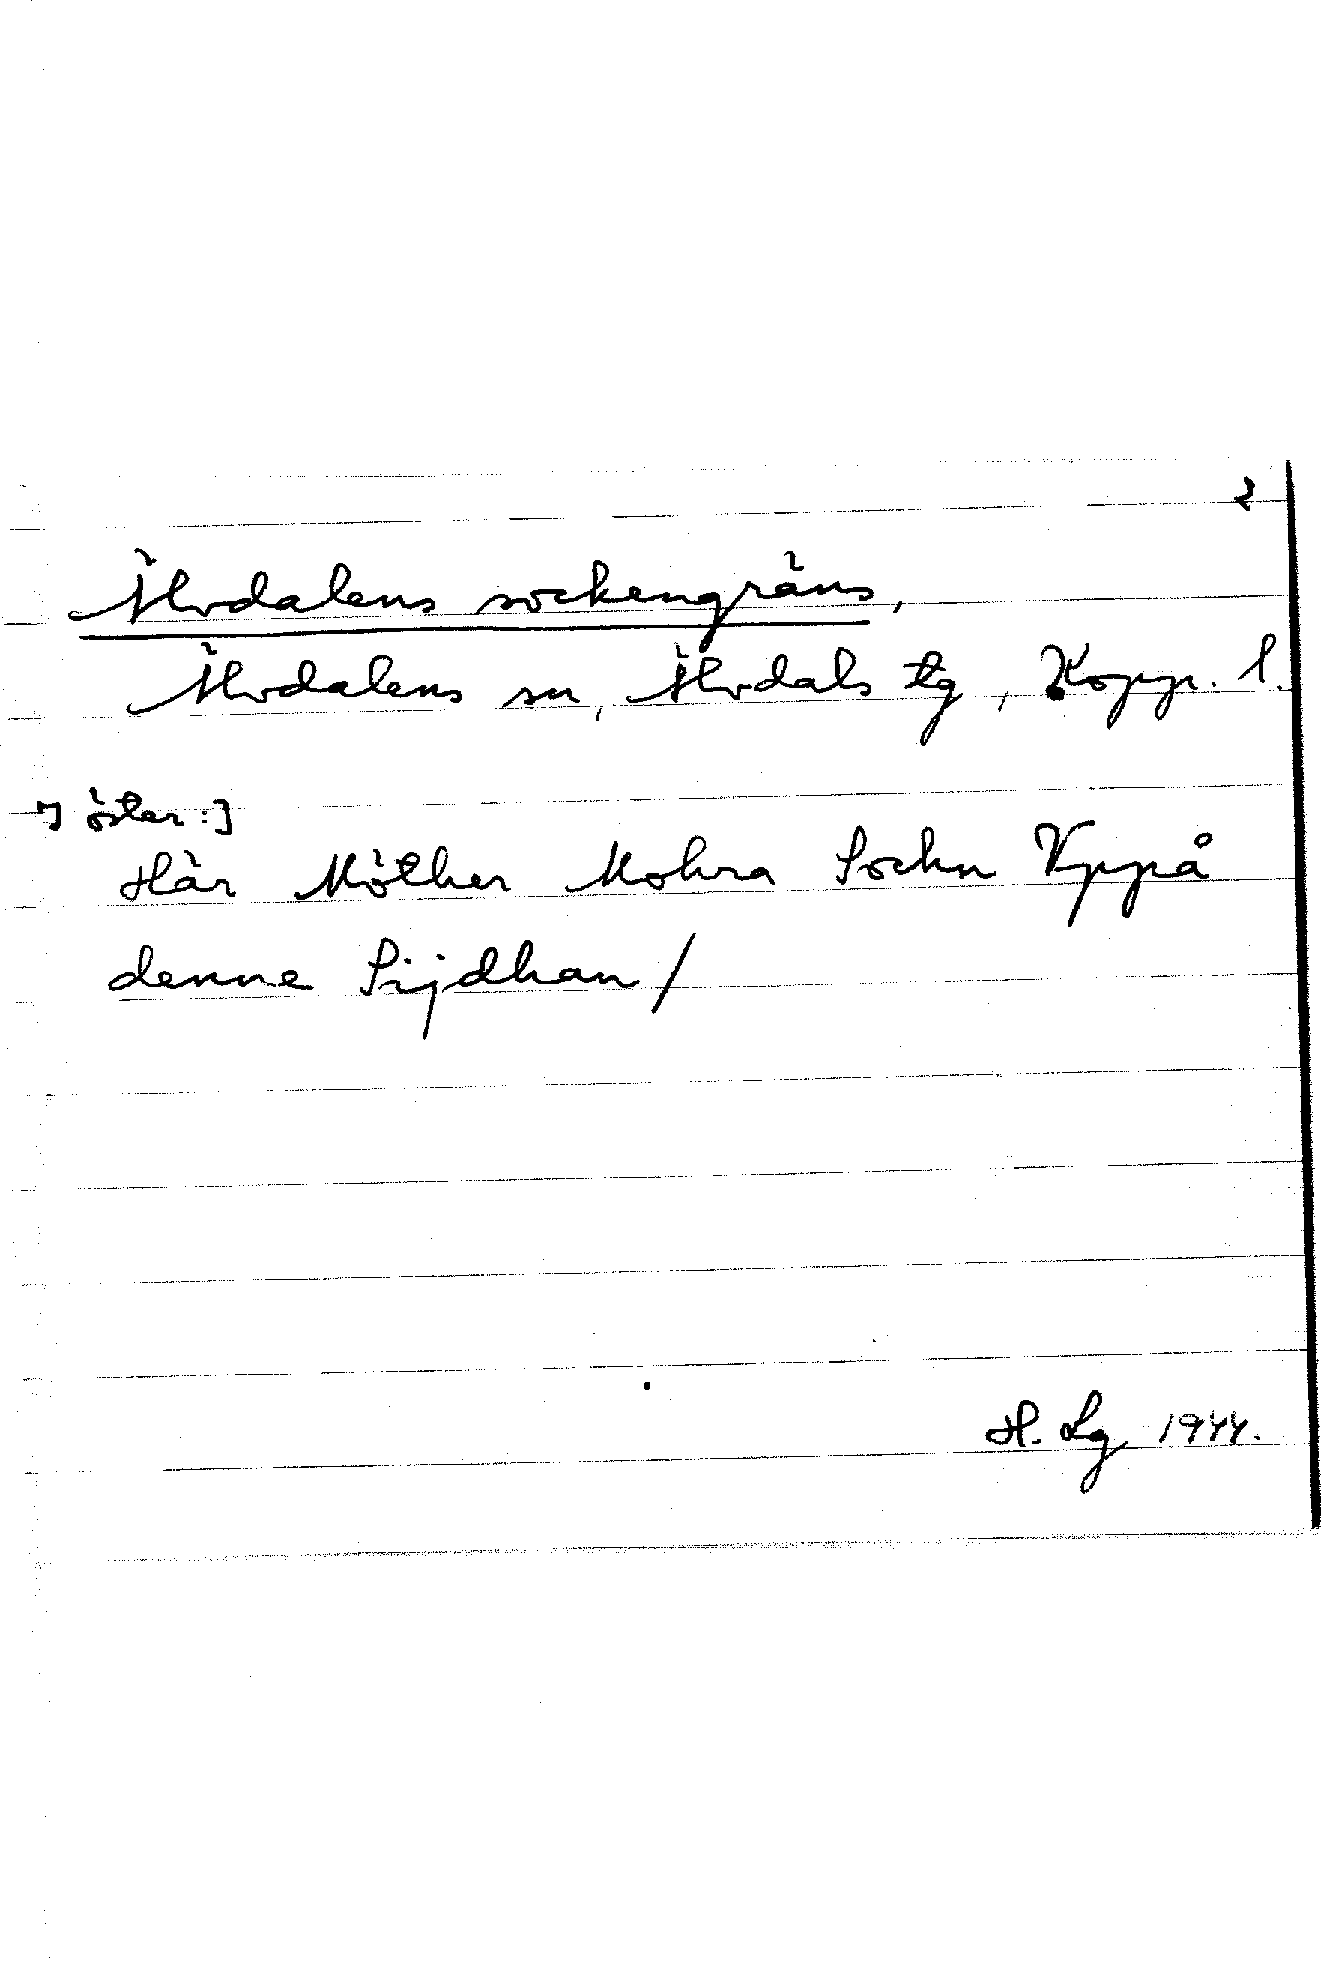 2
Älvdalens sockengräns,
Älvdalens sn, Älvdals tg, Kopp. l.
] öster:]
Här Möther Mohra Sochn Vppå
denne Sijdhan /
H. Lg 1944.